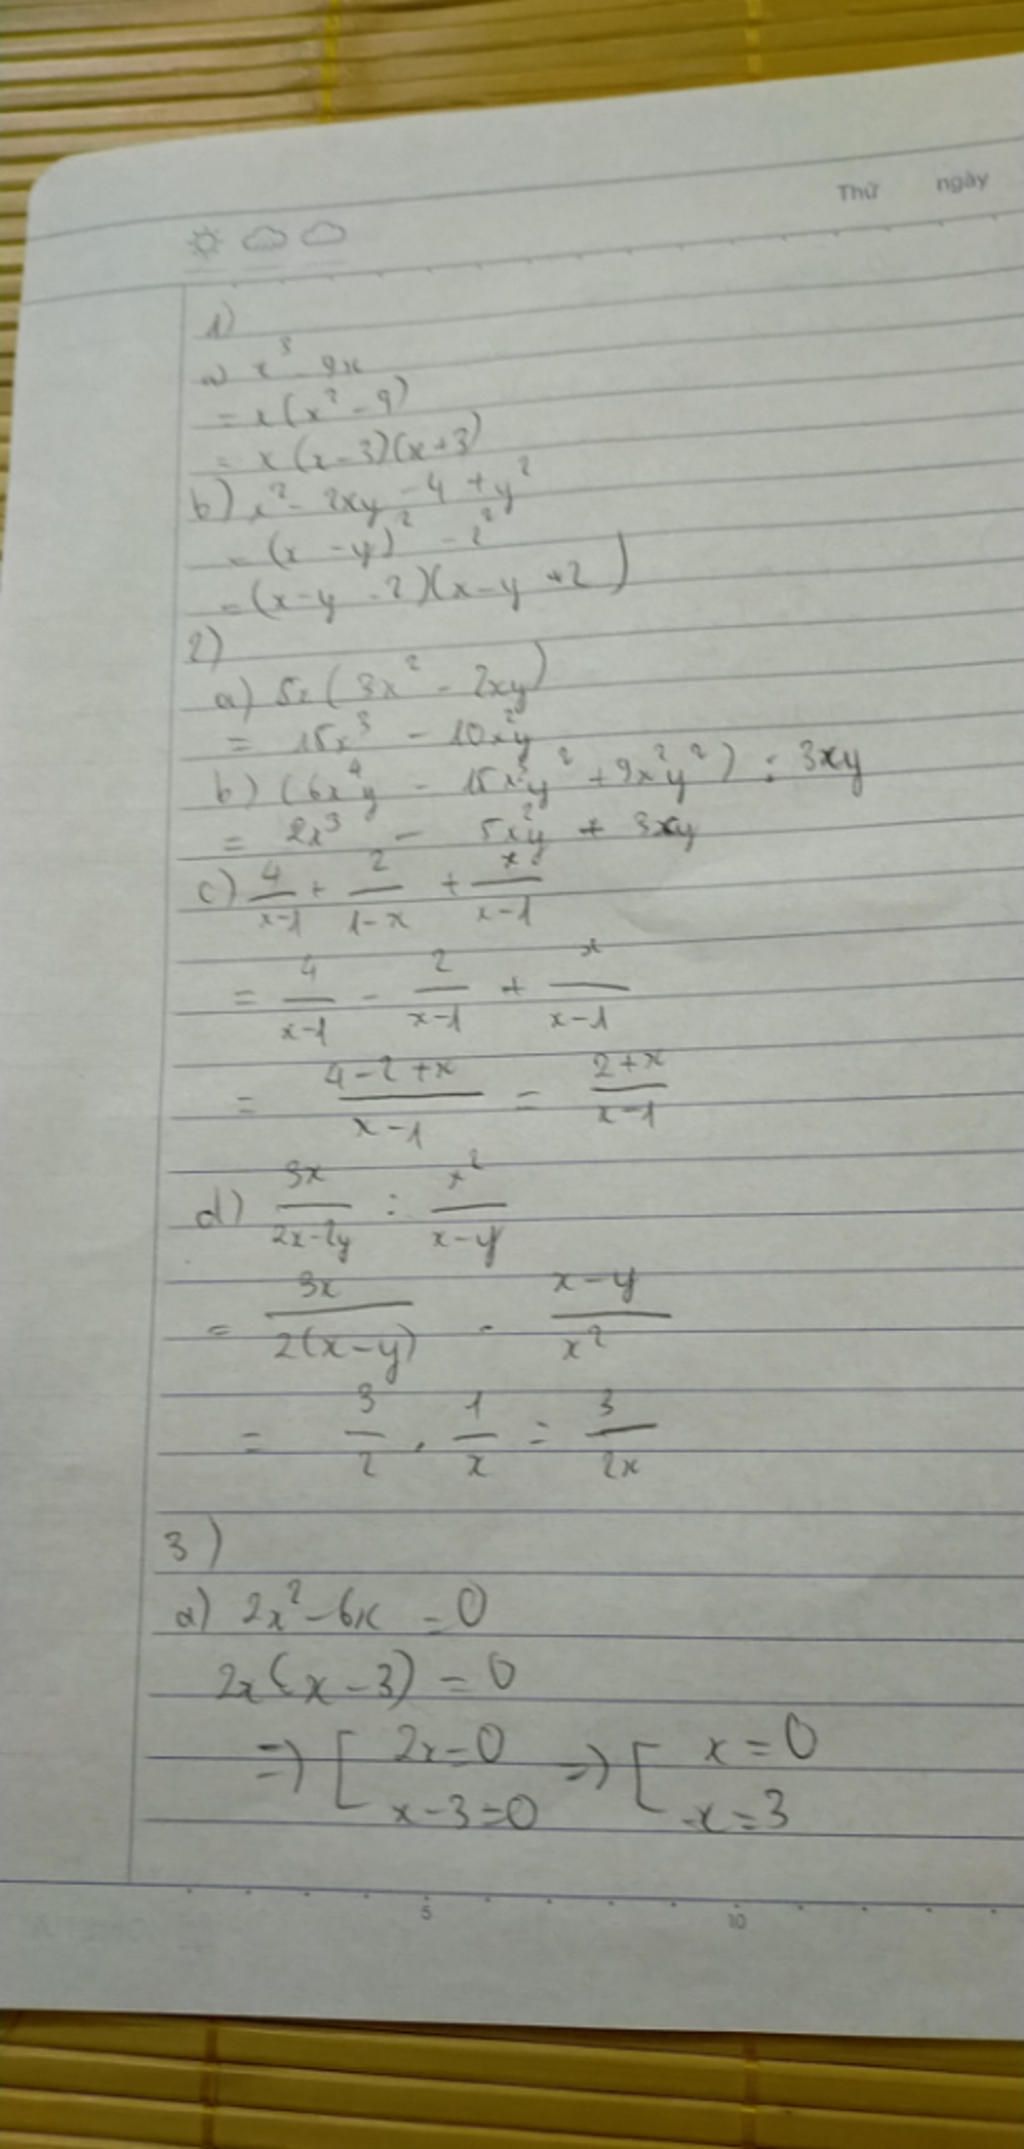 Thứ ngày
1)
a) x³ - 9x
= x(x² - 9)
= x(x-3)(x+3)
b) x² - 2xy - 4 + y²
= (x - y)² - 2²
= (x-y - 2)(x-y + 2)
2)
a) 5x(3x² - 2xy)
= 15x³ - 10x²y
b) (6x⁴y - 15x³y² + 9x²y²) : 3xy
= 2x³ - 5x²y + 3xy
c) 4/(x-1) + 2/(1-x) + x/(x-1)
= 4/(x-1) - 2/(x-1) + x/(x-1)
= (4-2+x)/(x-1) = (2+x)/(x-1)
d) 3x/(2x-2y) : x²/(x-y)
= 3x/(2(x-y)) . (x-y)/x²
= 3/2 . 1/x = 3/(2x)
3)
a) 2x² - 6x = 0
2x(x-3) = 0
=> [ 2x=0 => [ x=0
x-3=0 x=3
5 10